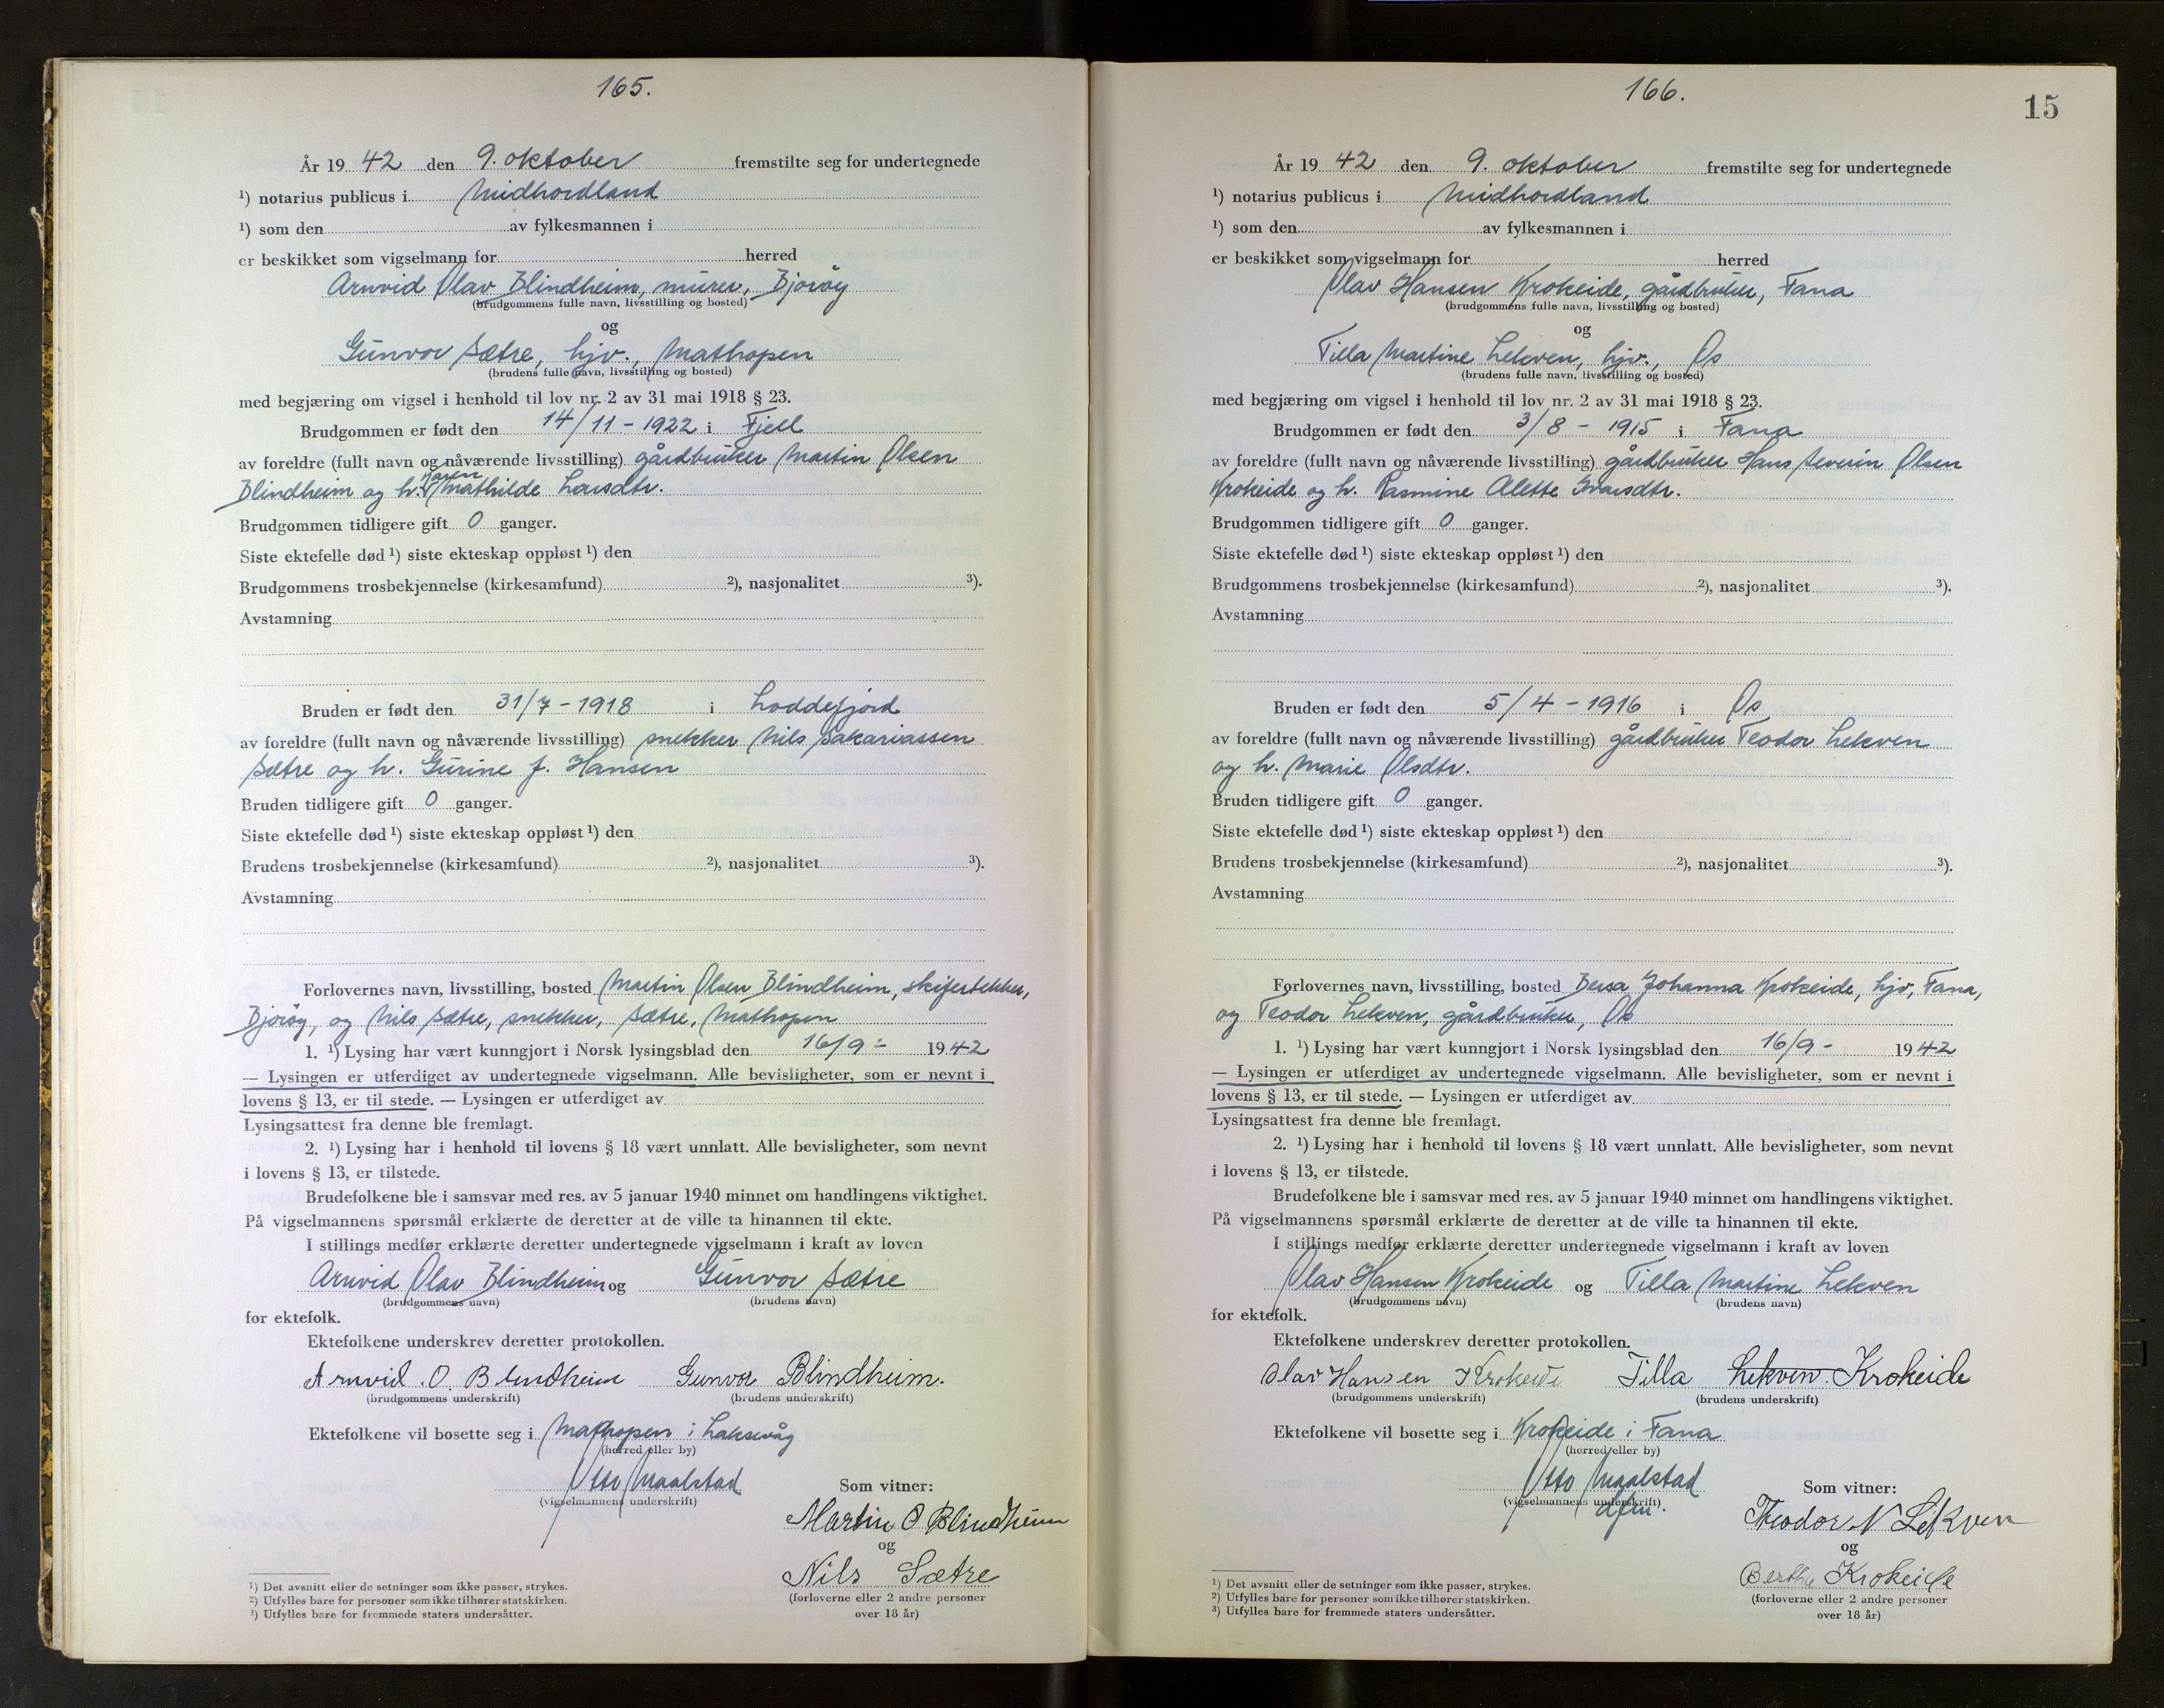 165.
År 19 42 den 9. oktober fremstilte seg for undertegnede
¹) notarius publicus i Midhordland
¹) som den av fylkesmannen i
er beskikket som vigselmann for herred
Arnvid Olav Blindheim, murer, Bjorøy
(brudgommens fulle navn, livsstilling og bosted)
og
Gunvor Sætre, hjv., Mathopen
(brudens fulle navn, livsstilling og bosted)
med begjæring om vigsel i henhold til lov nr. 2 av 31 mai 1918 § 23.
Brudgommen er født den 14/11 - 1922 i Fjell
av foreldre (fullt navn og nåværende livsstilling) gårdbruker Martin Olsen
Blindheim og h. Karen Mathilde Larsdtr.
Brudgommen tidligere gift 0 ganger.
Siste ektefelle død ¹) siste ekteskap oppløst ¹) den
Brudgommens trosbekjennelse (kirkesamfund) ²), nasjonalitet ³).
Avstamning
Bruden er født den 31/7 - 1918 i Loddefjord
av foreldre (fullt navn og nåværende livsstilling) snekker Nils Sakariassen
Sætre og h. Gurine f. Hansen
Bruden tidligere gift 0 ganger.
Siste ektefelle død ¹) siste ekteskap oppløst ¹) den
Brudens trosbekjennelse (kirkesamfund) ²), nasjonalitet ³).
Avstamning
Forlovernes navn, livsstilling, bosted Martin Olsen Blindheim, skifertekker,
Bjorøy, og Nils Sætre, snekker, Sætre, Mathopen
1. ¹) Lysing har vært kunngjort i Norsk lysingsblad den 16/9 - 1942
— Lysingen er utferdiget av undertegnede vigselmann. Alle bevisligheter, som er nevnt i
lovens § 13, er til stede. — Lysingen er utferdiget av
Lysingsattest fra denne ble fremlagt.
2. ¹) Lysing har i henhold til lovens § 18 vært unnlatt. Alle bevisligheter, som nevnt
i lovens § 13, er tilstede.
Brudefolkene ble i samsvar med res. av 5 januar 1940 minnet om handlingens viktighet.
På vigselmannens spørsmål erklærte de deretter at de ville ta hinannen til ekte.
I stillings medfør erklærte deretter undertegnede vigselmann i kraft av loven
Arnvid Olav Blindheim og Gunvor Sætre
(brudgommens navn) (brudens navn)
for ektefolk.
Ektefolkene underskrev deretter protokollen.
Arnvid. O. Blindheim Gunvor Blindheim.
(brudgommens underskrift) (brudens underskrift)
Ektefolkene vil bosette seg i Mathopen i Laksevåg
(herred eller by)
Otto Maalstad
(vigselmannens underskrift)
Som vitner:
Martin O Blindheim
og
Nils Sætre
(forloverne eller 2 andre personer
over 18 år)
¹) Det avsnitt eller de setninger som ikke passer, strykes.
²) Utfylles bare for personer som ikke tilhører statskirken.
³) Utfylles bare for fremmede staters undersåtter.
166.
15
År 19 42 den 9. oktober fremstilte seg for undertegnede
¹) notarius publicus i Midhordland
¹) som den av fylkesmannen i
er beskikket som vigselmann for herred
Olav Hansen Krokeide, gårdbruker, Fana
(brudgommens fulle navn, livsstilling og bosted)
og
Tilla Martine Lekven, hjv., Os
(brudens fulle navn, livsstilling og bosted)
med begjæring om vigsel i henhold til lov nr. 2 av 31 mai 1918 § 23.
Brudgommen er født den 3/8 - 1915 i Fana
av foreldre (fullt navn og nåværende livsstilling) gårdbruker Hans Severin Olsen
Krokeide og h. Rasmine Alette Ivarsdtr.
Brudgommen tidligere gift 0 ganger.
Siste ektefelle død ¹) siste ekteskap oppløst ¹) den
Brudgommens trosbekjennelse (kirkesamfund) ²), nasjonalitet ³).
Avstamning
Bruden er født den 5/4 - 1916 i Os
av foreldre (fullt navn og nåværende livsstilling) gårdbruker Teodor Lekven
og h. Marie Olsdtr.
Bruden tidligere gift 0 ganger.
Siste ektefelle død ¹) siste ekteskap oppløst ¹) den
Brudens trosbekjennelse (kirkesamfund) ²), nasjonalitet ³).
Avstamning
Forlovernes navn, livsstilling, bosted Johanna Krokeide, hjv, Fana,
og Teodor Lekven, gårdbruker, Os
1. ¹) Lysing har vært kunngjort i Norsk lysingsblad den 16/9 - 1942
— Lysingen er utferdiget av undertegnede vigselmann. Alle bevisligheter, som er nevnt i
lovens § 13, er til stede. — Lysingen er utferdiget av
Lysingsattest fra denne ble fremlagt.
2. ¹) Lysing har i henhold til lovens § 18 vært unnlatt. Alle bevisligheter, som nevnt
i lovens § 13, er tilstede.
Brudefolkene ble i samsvar med res. av 5 januar 1940 minnet om handlingens viktighet.
På vigselmannens spørsmål erklærte de deretter at de ville ta hinannen til ekte.
I stillings medfør erklærte deretter undertegnede vigselmann i kraft av loven
Olav Hansen Krokeide og Tilla Martine Lekven
(brudgommens navn) (brudens navn)
for ektefolk.
Ektefolkene underskrev deretter protokollen.
Olav Hansen Krokeide Tilla Lekven. Krokeide
(brudgommens underskrift) (brudens underskrift)
Ektefolkene vil bosette seg i Krokeide i Fana
(herred eller by)
Otto Maalstad
(vigselmannens underskrift)
Som vitner:
Theodor N Lekven
og
Bertha Krokeide
(forloverne eller 2 andre personer
over 18 år)
¹) Det avsnitt eller de setninger som ikke passer, strykes.
²) Utfylles bare for personer som ikke tilhører statskirken.
³) Utfylles bare for fremmede staters undersåtter.